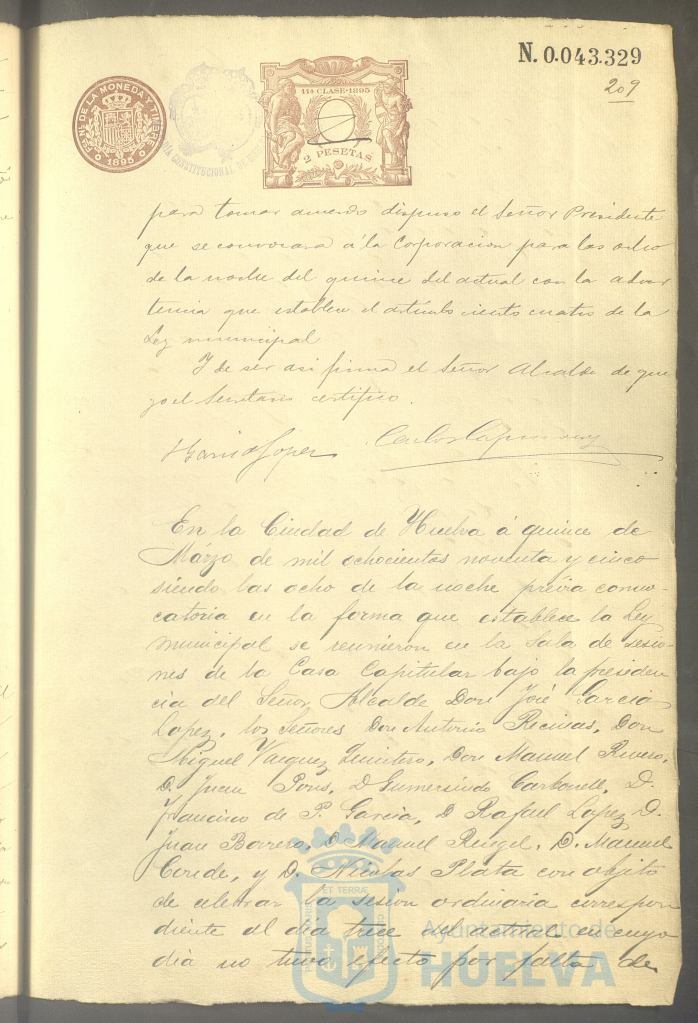 N. 0.043.329
209
NAL DE LA MONEDA Y TIMBRE
1895
CONSTITUCIONAL DE
11ª CLASE·1895
2 PESETAS
para tomar acuerdo dispuso el Señor Presidente
que se convocara á la Corporacion para las ocho
de la noche del quince del actual con la adver
tencia que establece el artículo ciento cuatro de la
Ley municipal
Y de ser asi firma el Señor Alcalde de que
yo el Secretario certifico.
Garcia Lopez
En la Ciudad de Huelva á quince de
Marzo de mil ochocientos noventa y cinco
siendo las ocho de la noche previa convo-
catoria en la forma que establece la Ley
municipal se reunieron en la Sala de sesio-
nes de la Casa Capitular bajo la presiden
cia del Señor Alcalde Don José Garcia
Lopez, los Señores Don Antonio Don
Miguel Vazquez Don Manuel Rivero,
D. Juan Pons, D Gumersindo Carbonell, D.
Francisco de P. Garcia, D Rafael Lopez D.
Juan Borrero, D Manuel Rengel, D. Manuel
Conde, y D. Nicolas Plata con objeto
de celebrar la sesion ordinaria correspon
diente al dia trece del actual en cuyo
dia no tuvo efecto por falta de
ET TERRÆ
PORTUS MARIS
CUSTODIA
Ayuntamiento de
HUELVA